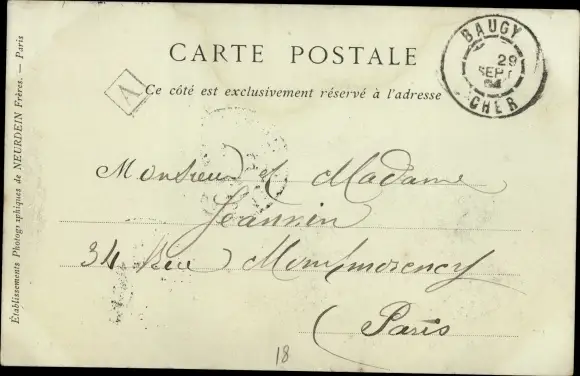 CARTE POSTALE
Ce côté est exclusivement réservé à l'adresse
BAUGY
29
SEPT
CHER
A
Monsieur et Madame
Jeannin
34 Rue Montmorency
Paris
18
Établissements Photographiques de NEURDEIN Frères. — Paris